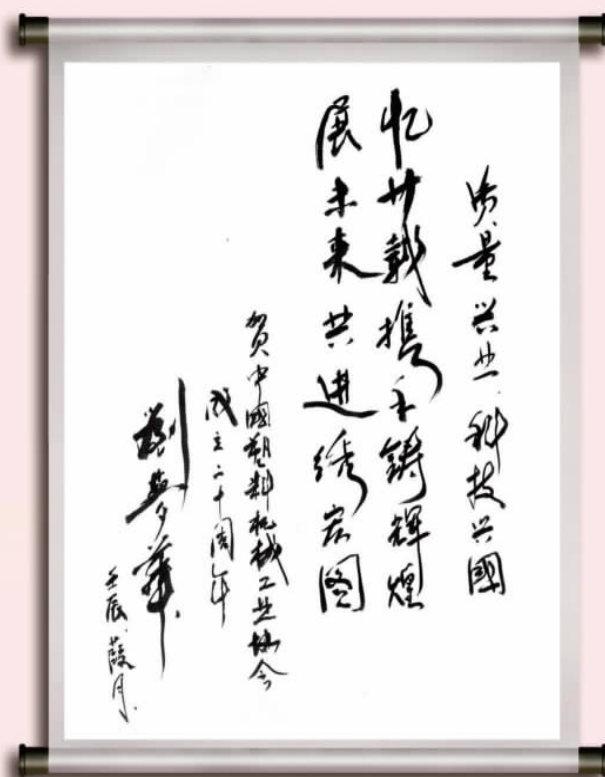 质量兴业 科技兴國
忆廿载携手铸辉煌
展未来共进绣宏图
贺中國塑料机械工业协会
成立二十周年
刘梦華
壬辰 葭月